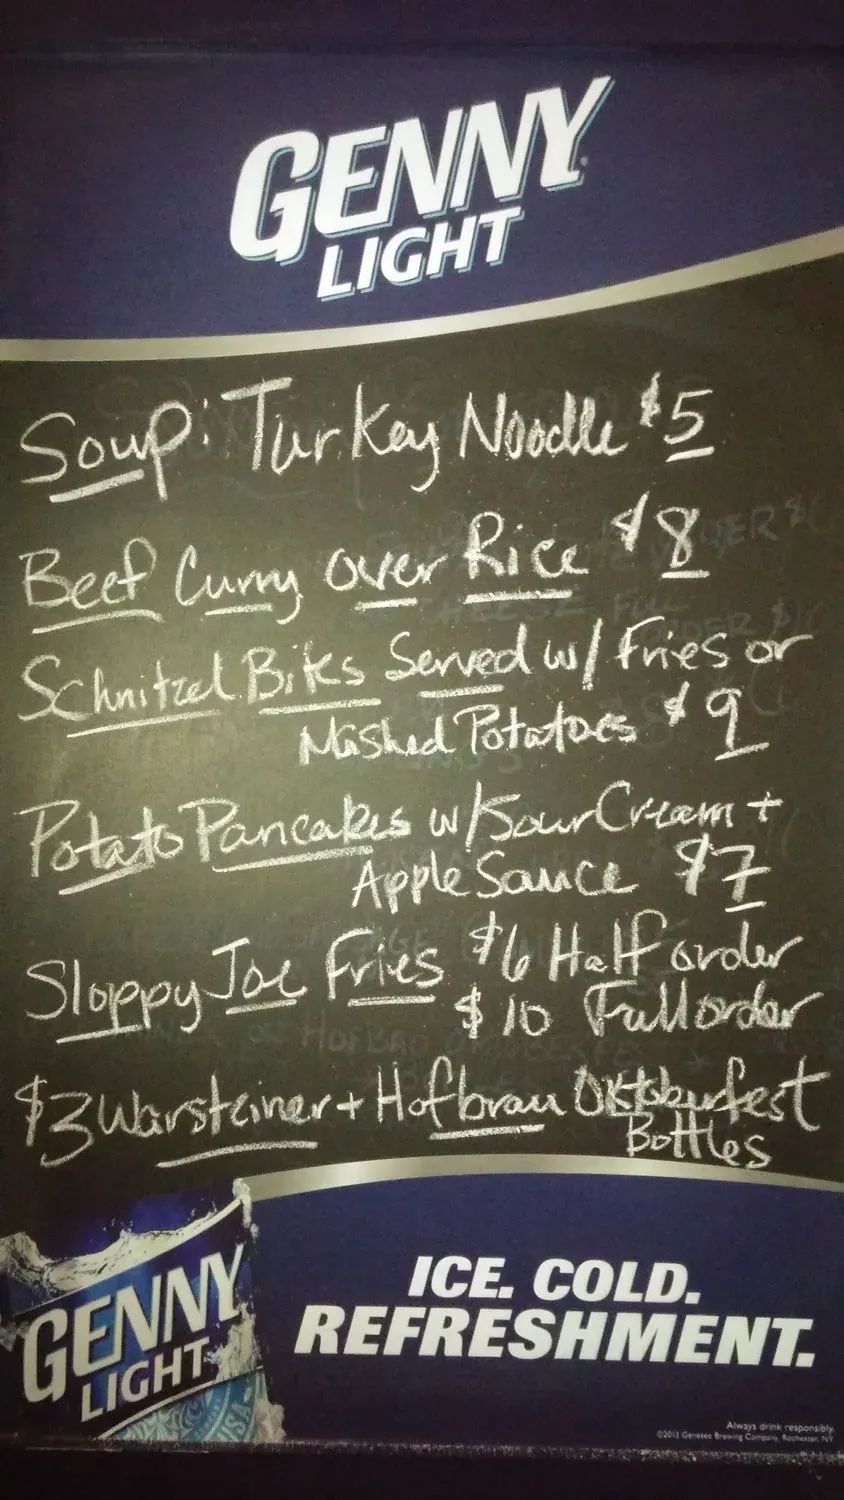 GENNY
LIGHT
Soup: Turkey Noodle $5
Beef Curry over Rice $8
Schnitzel Bites Served w/ Fries or
Mashed Potatoes $9
Potato Pancakes w/ Sour Cream +
Apple Sauce $7
Sloppy Joe Fries $6 Half order
$10 Full order
$3 Warsteiner + Hofbrau Oktoberfest
Bottles
GENNY
LIGHT
USA
ICE. COLD.
REFRESHMENT.
Always drink responsibly.
©2013 Genesee Brewing Company, Rochester, NY